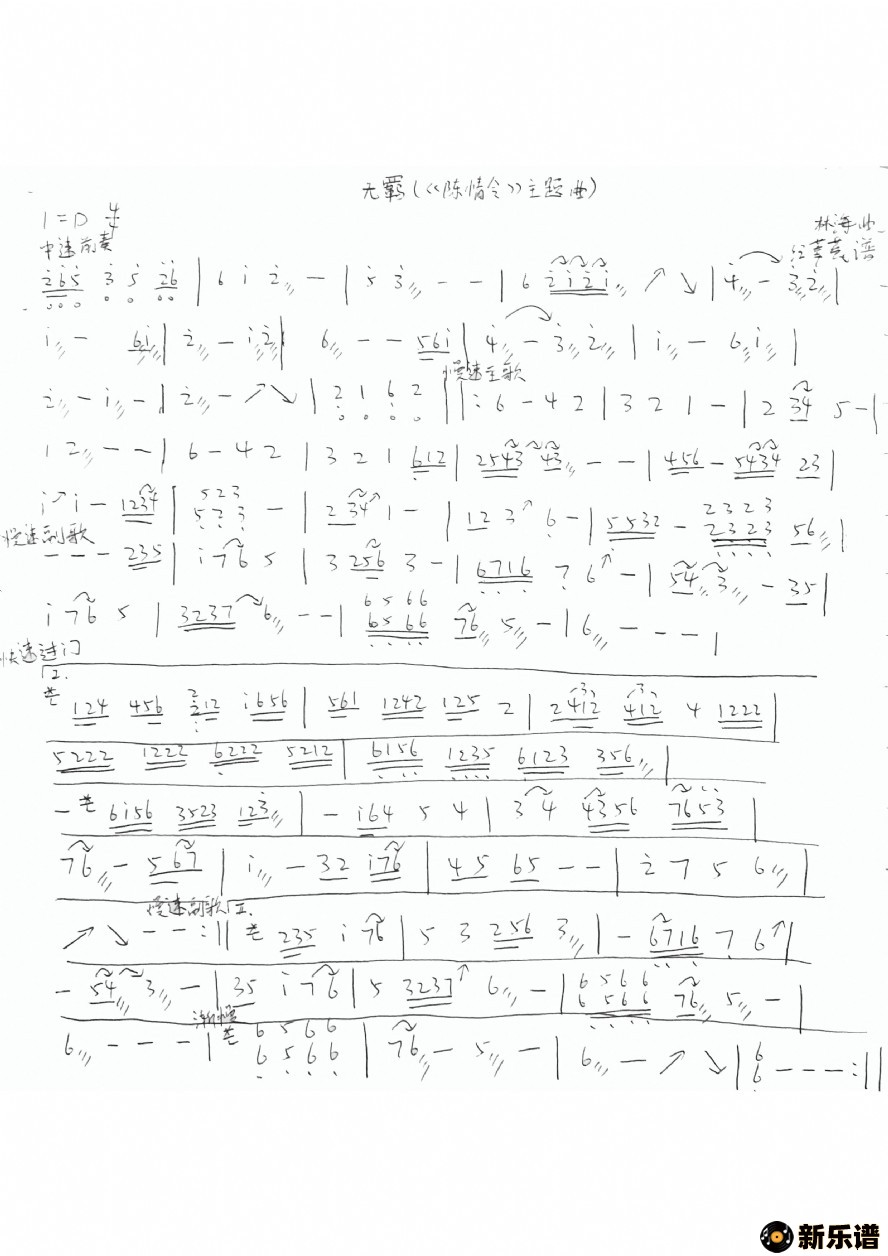 无羁(《陈情令》主题曲)
1=D 4/4
林海曲
中速前奏
红苇莫谱
2̇6̇5̇ 3̇ 5̇ 2̇6 | 6 i 2̇ - | 5̇ 3̇ - - | 6 2̇i2̇i ↗ ↘ | 4̇ - 3̇2̇ |
i - 6i | 2̇ - i2̇ | 6 - - 56i | 4̇ - 3̇ 2̇ | i - 6 i |
慢速主歌
2̇ - i - | 2̇ - ↗ ↘ | 2 1 6 2 ||: 6 - 4 2 | 3 2 1 - | 2 34 5 - |
1 2 - - | 6 - 4 2 | 3 2 1 612 | 2543 43 - - | 456 - 5434 23 |
i i - 1234 | 523 523 - | 2 34 1 - | 12 3 6 - | 5532 - 2323 2323 56 |
慢速副歌
- - - 235 | i 76 5 | 3 256 3 - | 6716 7 6 - | 54 3 - 35 |
i 76 5 | 3237 6 - - | 6566 6566 76 5 - | 6 - - - |
快速过门
2.
124 456 2212 i656 | 561 1242 125 2 | 2412 412 4 1222 |
5222 1222 6222 5212 | 6156 1235 6123 356 |
- 6i56 3523 123 | - i64 5 4 | 3 4 4356 7653 |
76 - 5 67 | i - 32 i76 | 45 65 - - | 2̇ 7 5 6 |
慢速副歌Ⅱ.
↗ ↘ - - :|| 235 i 76 | 5 3 256 3 | - 6716 7 6 |
- 54 3 - | 35 i 76 | 5 3237 6 - | 6566 6566 76 5 - |
渐慢
6 - - - | 6566 6566 | 76 - 5 - | 6 - ↗ ↘ | 6 6 - - - :||
新乐谱